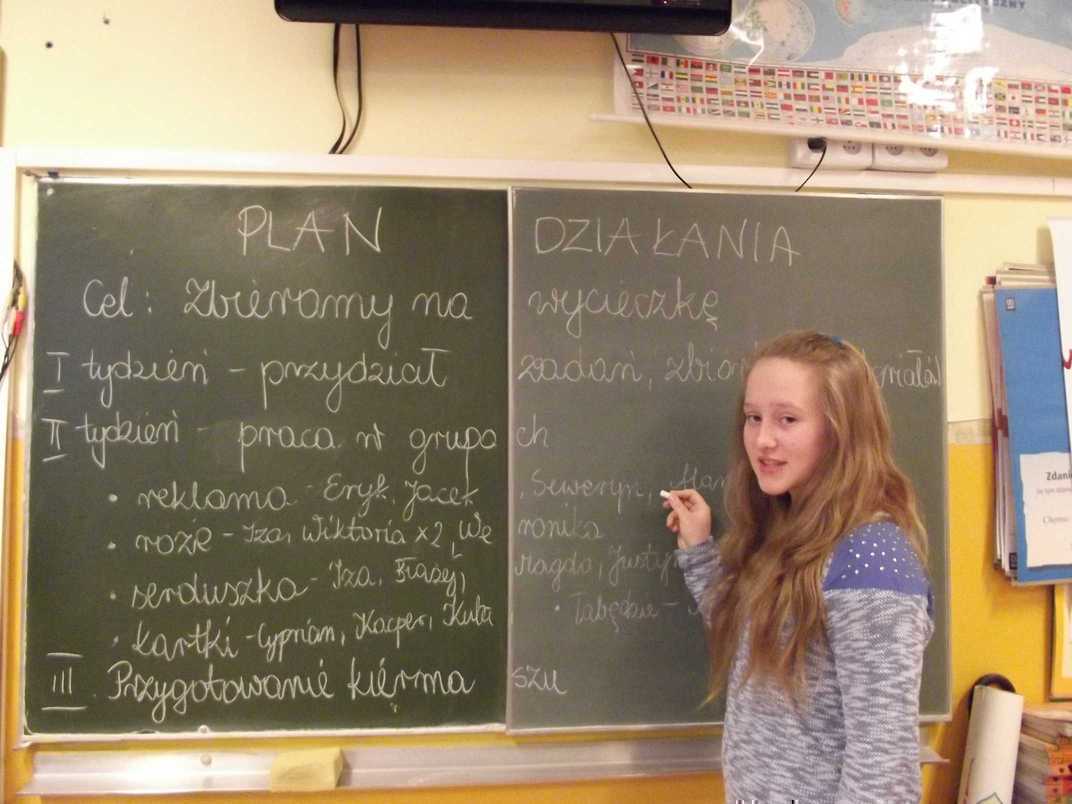 PLAN DZIAŁANIA
Cel: Zbieramy na wycieczkę
I tydzień - przydział zadań,
II tydzień - praca w grupach
• reklama - Eryk, Jacek, Seweryn,
• róże - Iza, Wiktoria x2, Weronika
• serduszka - Iza, Błażej, Magda,
• kartki - Cyprian, Kacper, Kuba
• Łabędzie -
III Przygotowanie kiermaszu
Zdani